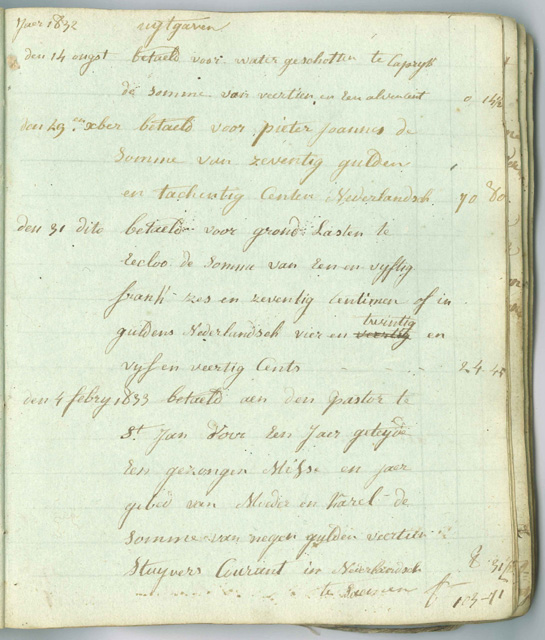 Jaer 1832 uijtgaven
den 14 ougst betaeld voor water geschotten te Capryk
de somme van veertien en een alven cent 0 14½
den 29 xber betaeld voor pieter joannes de
somme van zeventig gulden
en tachentig Centen Nederlandsch 70 80
den 31 dito betaeld voor grond Lasten te
Eecloo de Somme van Een en vyftig
frank zes en zeventig Centimen of in
guldens Nederlandsch vier en twintig en
vyf en veertig Cents 24-45
den 4 febry 1833 betaeld aen den pastor te
St Jan Voor Een Jaer geteyde
Een gezongen Misse en jaer
gebed van Moeder en Karel de
Somme van negen gulden veertien
Stuyvers Courant in Nederlandsch 8 31
te Saemen fr 103-71